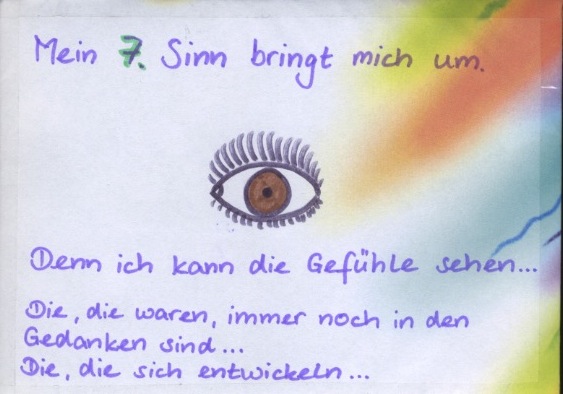 Mein 7. Sinn bringt mich um.
Denn ich kann die Gefühle sehen...
Die, die waren, immer noch in den
Gedanken sind...
Die, die sich entwickeln...